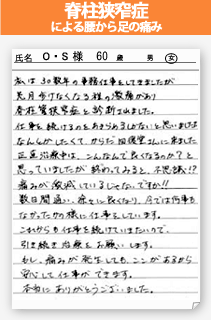 脊柱狭窄症
による腰から足の痛み
氏名 O・S 様 60 歳 男 女
私は30数年の事務仕事をしてきましたが
先月歩けなくなる程の激痛があり
脊柱管狭窄症と診断されました。
仕事を続けるのをあきらめるしかないと思いましたが
なんとかしたくて、からだ回復堂さんに来ました
正直治療中は、こんなんで良くなるのか?と
思っていましたが終わってみると、不思議!?
痛みが激減しているじゃないですか!!
数日間通い、徐々に良くなり、今では何事も
なかったかの様に仕事をしています。
これからも仕事を続けていきたいので、
引き続き治療をお願いします。
もし、痛みが発生しても、ここがあるから
安心して仕事ができます。
本当にありがとうございました。